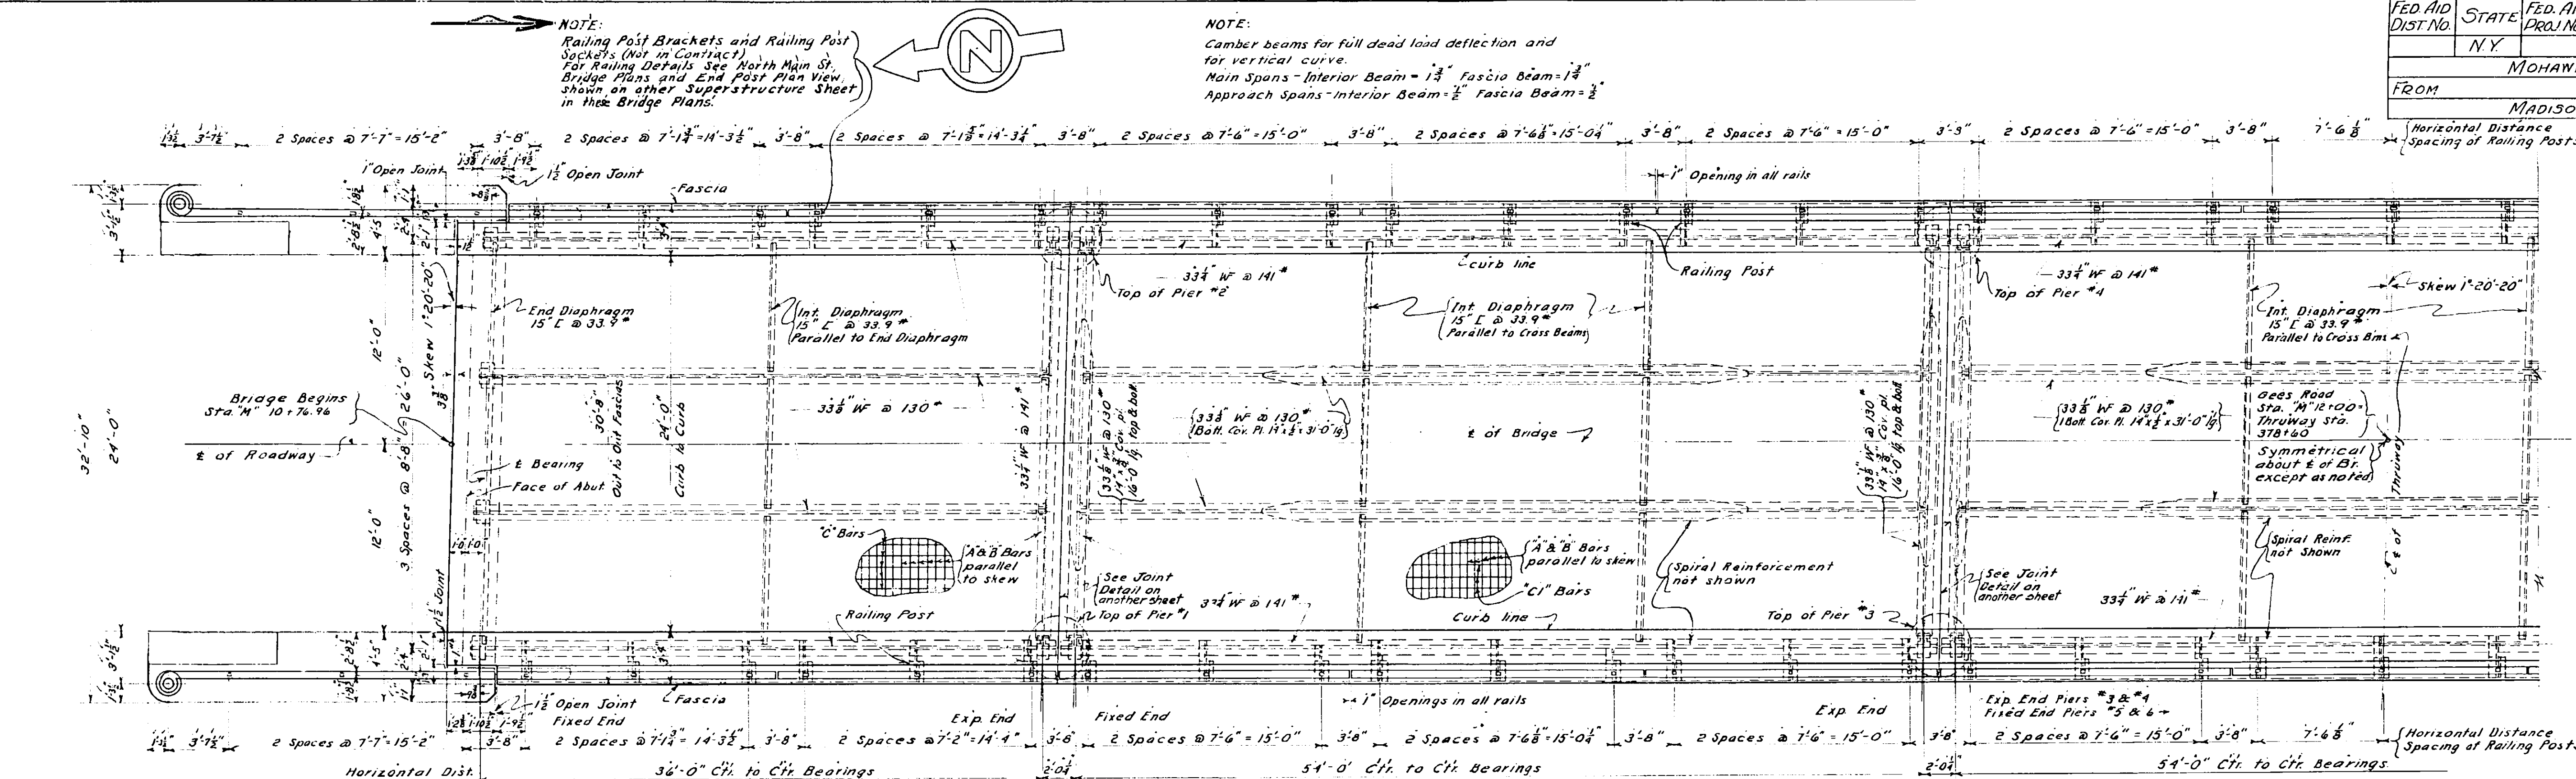 NOTE:
Railing Post Brackets and Railing Post
Sockets (Not in Contract)
For Railing Details See North Main St.
Bridge Plans and End Post Plan View
shown on other Superstructure Sheet
in these Bridge Plans.
N
NOTE:
Camber beams for full dead load deflection and
for vertical curve.
Main Spans - Interior Beam = 1 3/4" Fascia Beam = 1 3/4"
Approach Spans - Interior Beam = 1/2" Fascia Beam = 1/2"
FED. AID
DIST. NO.
STATE
FED. AI
PROJ. NO
N.Y.
MOHAW
FROM
MADISO
3'-7 1/2"
2 Spaces @ 7'-7" = 15'-2"
3'-8"
2 Spaces @ 7'-1 3/4" = 14'-3 1/2"
3'-8"
2 Spaces @ 7'-1 5/8" = 14'-3 1/4"
3'-8"
2 Spaces @ 7'-6" = 15'-0"
3'-8"
2 Spaces @ 7'-6 1/8" = 15'-0 1/4"
3'-8"
2 Spaces @ 7'-6" = 15'-0"
3'-8"
2 Spaces @ 7'-6" = 15'-0"
3'-8"
7'-6 1/8"
Horizontal Distance
Spacing of Railing Posts
1" Open Joint
1 1/2 Open Joint
Fascia
1" Opening in all rails
33 1/4" WF @ 141#
Top of Pier #2
curb line
Railing Post
33 1/4" WF @ 141#
Top of Pier #4
Skew 1°-20'-20"
End Diaphragm
15" [ @ 33.9#
Int. Diaphragm
15" [ @ 33.9#
Parallel to End Diaphragm
Int. Diaphragm
15" [ @ 33.9#
Parallel to Cross Beams
Int. Diaphragm
15" [ @ 33.9#
Parallel to Cross Bms
32'-10"
24'-0"
12'-0"
12'-0"
3 Spaces @ 8'-8" = 26'-0"
Skew 1°-20'-20"
Bridge Begins
Sta. "M" 10+76.96
℄ of Roadway
℄ Bearing
Face of Abut.
30'-8"
Out to Out Fascias
24'-0"
Curb to Curb
33 1/8" WF @ 130#
33 1/4" WF @ 141#
33 1/8" WF @ 130#
14" x 3/8" Cov. pl.
16'-0" lg. top & bott.
33 1/8" WF @ 130#
1 Bott. Cov. Pl. 14" x 1/2" x 31'-0" lg.
℄ of Bridge
33 1/8" WF @ 130#
14" x 3/8" Cov. pl.
16'-0" lg. top & bott.
33 1/8" WF @ 130#
1 Bott. Cov. Pl. 14" x 1/2" x 31'-0" lg.
Gees Road
Sta. "M" 12+00=
Thruway Sta.
378+60
Symmetrical
about ℄ of Br.
except as noted
℄ of Thruway
"C" Bars
"A" & "B" Bars
parallel
to skew
See Joint
Detail on
another sheet
33 1/4" WF @ 141#
Top of Pier #1
"A" & "B" Bars
parallel to skew
"C1" Bars
Spiral Reinforcement
not shown
Spiral Reinf.
not Shown
See Joint
Detail on
another sheet
33 1/4" WF @ 141#
Railing Post
Curb line
Top of Pier #3
1 1/2" Joint
1 1/2" Open Joint
Fascia
1" Openings in all rails
Fixed End
Exp. End
Fixed End
Exp. End
Exp. End Piers #3 & #4
Fixed End Piers #5 & 6
3'-7 1/2"
2 Spaces @ 7'-7" = 15'-2"
3'-8"
2 Spaces @ 7'-1 3/4" = 14'-3 1/2"
3'-8"
2 Spaces @ 7'-2" = 14'-4"
3'-8"
2 Spaces @ 7'-6" = 15'-0"
3'-8"
2 Spaces @ 7'-6 1/8" = 15'-0 1/4"
3'-8"
2 Spaces @ 7'-6" = 15'-0"
3'-8"
2 Spaces @ 7'-6" = 15'-0"
3'-8"
7'-6 1/8"
Horizontal Distance
Spacing of Railing Posts
Horizontal Dist.
36'-0" Ctr. to Ctr. Bearings
2'-0 1/4"
54'-0" Ctr. to Ctr. Bearings
2'-0 1/4"
54'-0" Ctr. to Ctr. Bearings